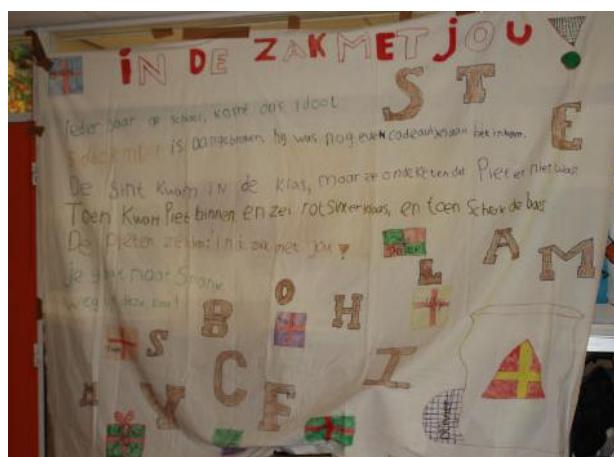 iN DE ZAK MET JOU!
S T E
ieder jaar op school, komt ons idool
5 december is aangebroken, hij was nog even cadeautjes aan het inkopen.
De Sint kwam in de klas, maar ze ontdekten dat Piet er niet was
Toen kwam Piet binnen en zei rotsinterklaas, en toen de baas
De pieten zeiden in zak met jou!
je gaat naar Spanje
weg
L A M
S B O H
A V C F I